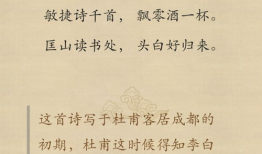 敏捷诗千首，飘零酒一杯。
匡山读书处，头白好归来。
这首诗写于杜甫客居成都的
初期，杜甫这时候得知李白